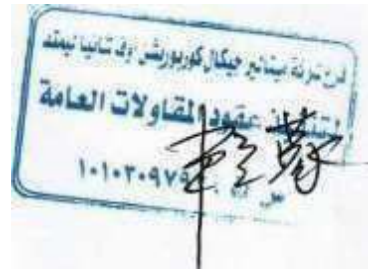 فرع شركة ميتالير جيكال كوربوريشن اوف تشاينا ليمتد
لتنفيذ عقود المقاولات العامة
س.ت ١٠١٠٣٠٩٧٩